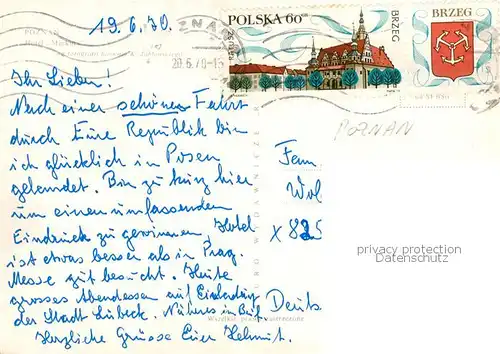 19.6.70.
POZNAŃ
20.6.70-15
POLSKA 60 GR
BRZEG
BRZEG
POZNAN
Ihr Lieben!
Nach einer schönen Fahrt
durch Eure Republik bin
ich glücklich in Posen
gelandet. Bin zu kurz hier
um einen umfassenden
Eindruck zu gewinnen, Hotel
ist etwas besser als in Prag.
Messe gut besucht. Heute
grosses Abendessen auf Einladung
der Stadt Lübeck. Näheres in
Herzliche Grüsse Euer Helmut.
Fam
Wol
x 825
Deuts
privacy protection
Datenschutz